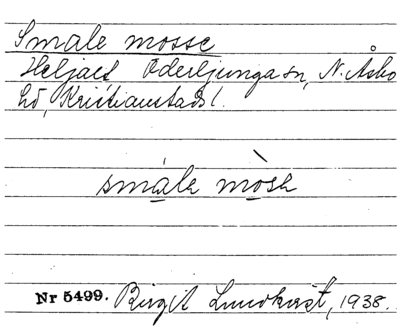 Smale mosse
Heljalt Oderljunga sn, N. Åsbo
hd, Kristianstads l.
smálɘ mòsɘ
Nr 5499. Birgit Lundkvist, 1938.